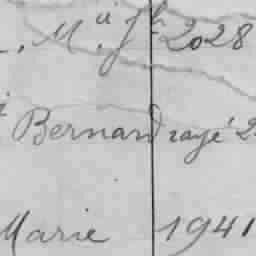 Mᵃ Jʰ 2028
Bernard rayé 2
Marie 1941